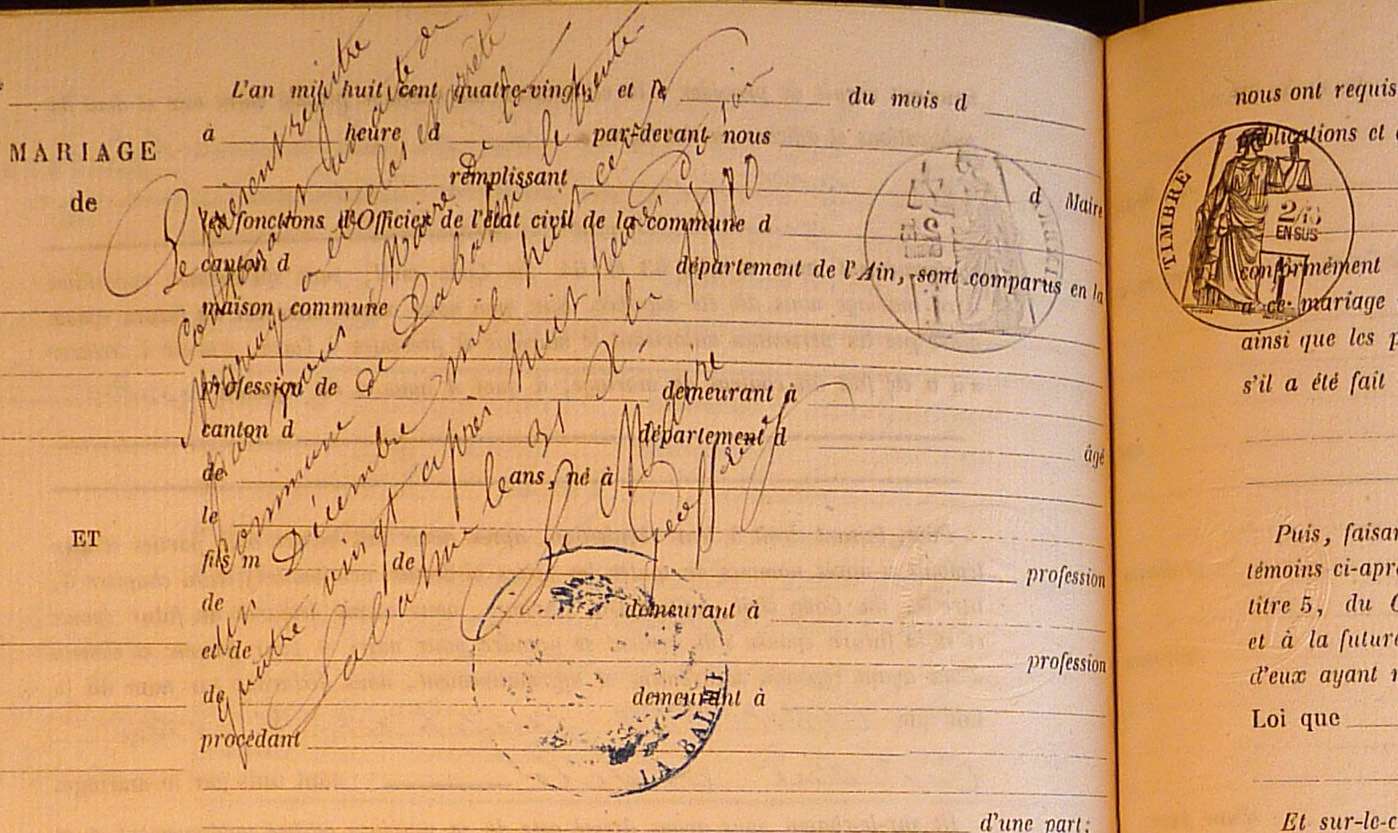 L'an mil huit cent quatre-vingt et le du mois d
à heure d par-devant nous
MARIAGE
de
remplissant d Maire
les fonctions d'Officier de l'état civil de la commune d
canton d département de l'Ain, sont comparus en la
maison commune
profession de demeurant à
canton d département d
âgé
de ans, né à
le
ET
fils m de profession
de demeurant à
et de profession
de demeurant à
procédant
d'une part:
Le présent registre
contenant un acte de
Mariage a été clos et arrêté
par nous, Maire de la
commune de Labalme le trente-
un Décembre mil huit cent
quatre vingt après huit heures du soir
Labalme le 31 Xbre 1880
Le Maire
LA BALME
nous ont requis
publications et
TIMBRE
2/10
EN SUS
conformément
à ce mariage
ainsi que les
s'il a été fait
Puis, faisan
témoins ci-apr
titre 5, du
et à la future
d'eux ayant
Loi que
Et sur-le-c